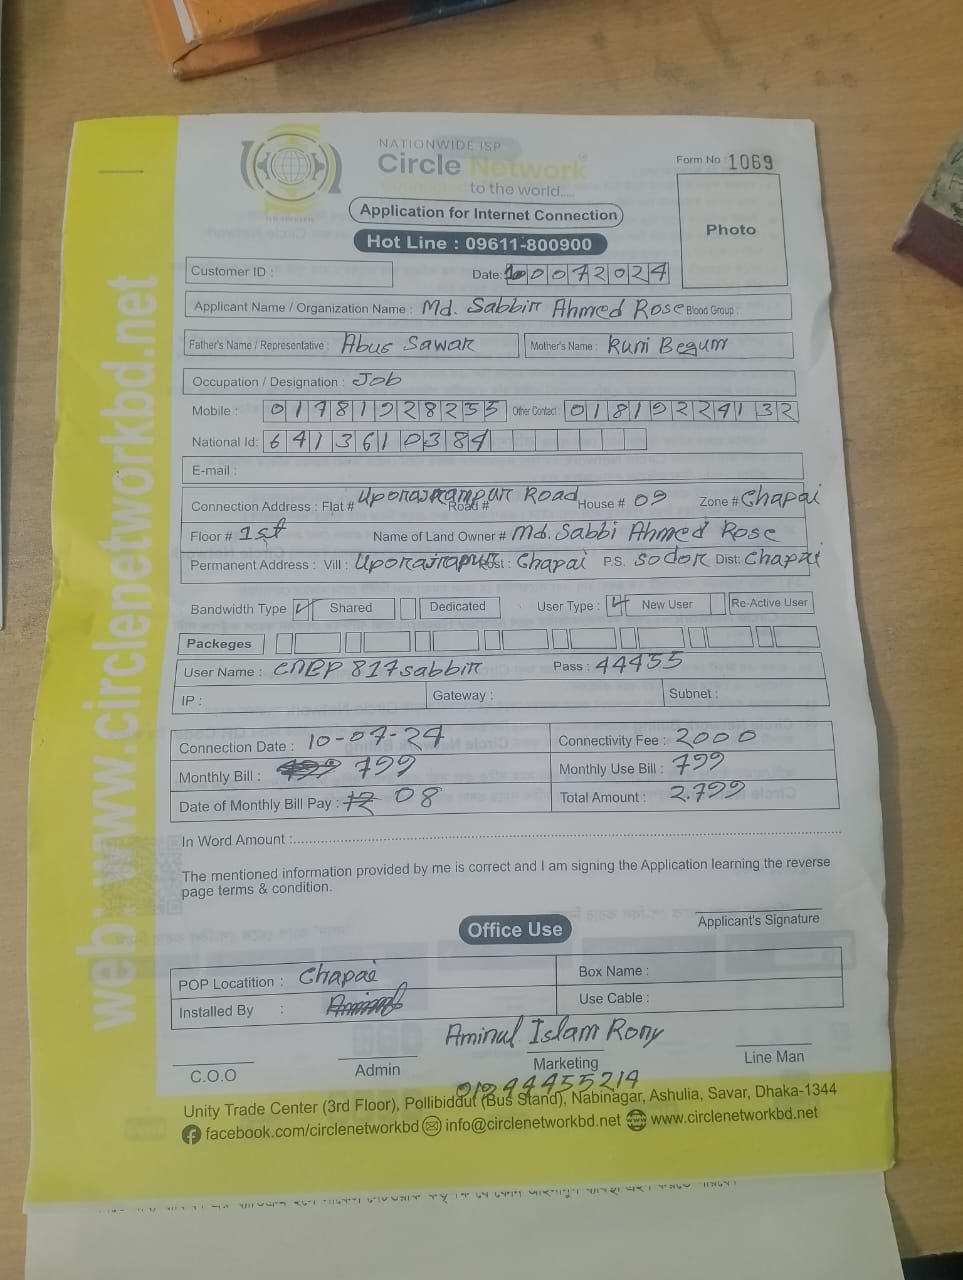 NATIONWIDE ISP
Circle Network
to the world.....
Form No : 1069
Application for Internet Connection
Photo
Hot Line : 09611-800900
Customer ID :
Date: 10072024
Applicant Name / Organization Name : Md. Sabbir Ahmed Rose Blood Group :
Father's Name / Representative : Abus Sawar Mother's Name : Runi Begum
Occupation / Designation : Job
Mobile : 01781928255 Other Contact : 01819224132
National Id: 6413610384
E-mail :
Connection Address : Flat # Uporajrampur Road Road # House # 09 Zone # Chapai
Floor # 1st Name of Land Owner # Md. Sabbi Ahmed Rose
Permanent Address : Vill : Post : Chapai P.S. Sodor Dist: Chapai
Bandwidth Type Shared Dedicated User Type : New User Re-Active User
Packeges
User Name : Pass : 44455
IP : Gateway : Subnet :
Connection Date : 10-07-24 Connectivity Fee : 2000
Monthly Bill : 799 Monthly Use Bill : 799
Date of Monthly Bill Pay : 08 Total Amount : 2.799
In Word Amount :
The mentioned information provided by me is correct and I am signing the Application learning the reverse
page terms & condition.
Applicant's Signature
Office Use
POP Locatition : Chapai Box Name :
Installed By : Use Cable :
Aminul Islam Rony
C.O.O Admin Marketing Line Man
Unity Trade Center (3rd Floor), Pollibiddut (Bus Stand), Nabinagar, Ashulia, Savar, Dhaka-1344
facebook.com/circlenetworkbd info@circlenetworkbd.net www.circlenetworkbd.net
web: www.circlenetworkbd.net